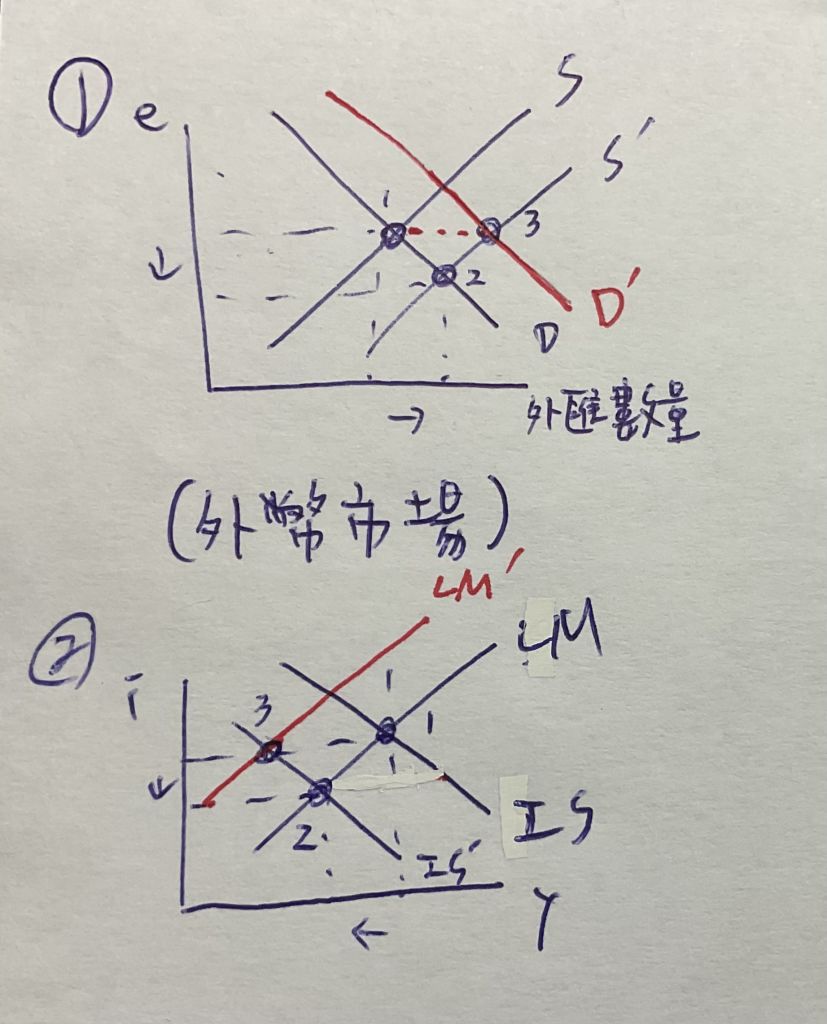 ① e
S
S′
1
3
2
D
D′
↓
→
外匯數量
(外幣市場)
LM′
② i
LM
3
1
↓
2
IS
IS′
←
Y